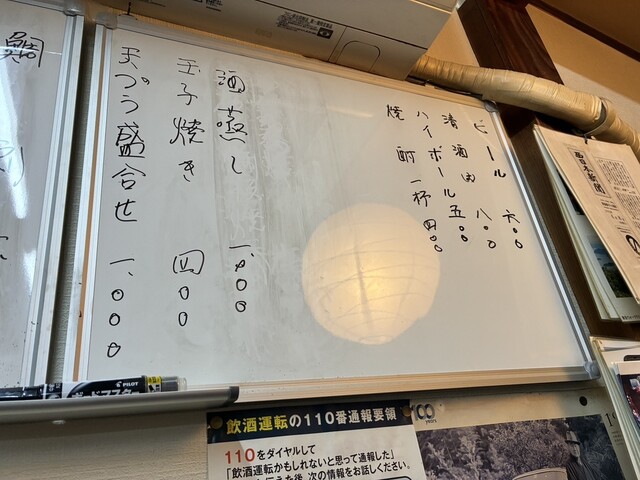 ビール 六〇〇
清酒 八〇〇
ハイボール 五〇〇
焼酎一杯 四〇〇
酒蒸し 一、〇〇〇
玉子焼き 四〇〇
天ぷら盛合せ 一、〇〇〇
鯛
PILOT
ボードマスター
飲酒運転の110番通報要領
110をダイヤルして
「飲酒運転かもしれないと思って通報した」
次の情報をお話しください。
100
years